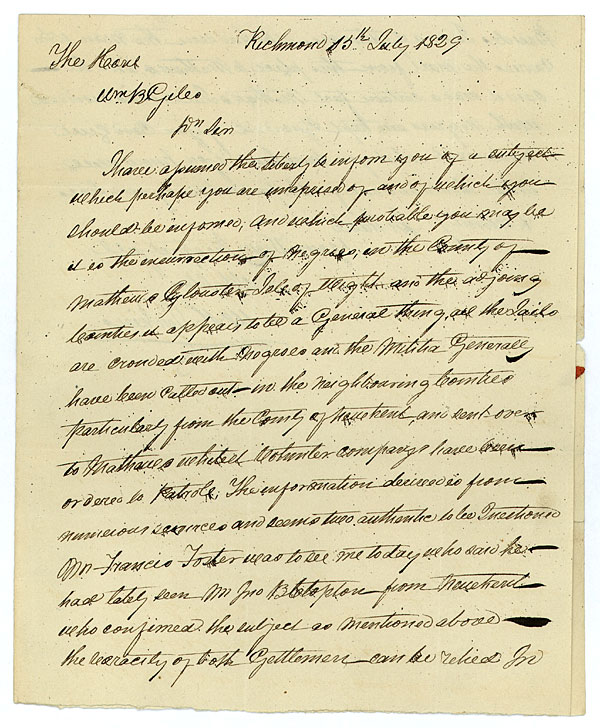 Richmond 15th July 1829
The Honl
Wm B Giles
Dr Sir
I have assumed the liberty to inform you of a subject
which perhaps you are unapprised of and of which you
should be informed, and which probable you may be
it is the insurrection of Negroes, in the County of
Mathews Gloucester Isle of Wight and the adjoing
Counties it appears to be a General thing, all the Jails
are crouded with Negroes and the Militia Generally
have been Called out in the Neighbouring Counties
particularly from the County of Newkent, and sent over
to Mathews whilst Volunter companys have been
ordered to Patrole. The information derived is from
numerous sources and seems two authentic to be Questiond
Mr Francis Foster was to see me to day who said he
had lately seen Mr Jno B Clopton from Newkent
who confirmed the subject as mentioned above
the veracity of both Gentlemen can be relied On